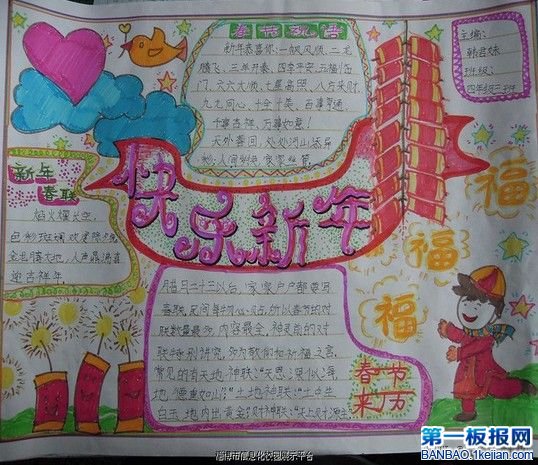 春节祝语
新年恭喜你:一帆风顺,二龙
腾飞,三羊开泰,四季平安,五福临
门,六六大顺,七星高照,八方来财,
九九同心,十全十美,百事亨通,
千事吉祥,万事如意!
天外春回,处处河山添异
彩,人间
主编:
韩君妹
班级:
四年级三班
新年
春联
焰火耀长空
色彩斑斓
人声鼎沸喜
迎吉祥年
快乐新年
福
福
福
腊月二十三以后,家家户户都要写
春联,民间每
联数量最多,内容最全,神灵前的对
联特别讲究,多为敬仰和祈福之言,
常见的有天地神联:“天恩深似海,
地德重如山”;土地神联:“土中生
白玉,地内出黄金”;财神联:“天上财源主
春节
来历
淄博市信息化校园展示平台
第一板报网
BANBAO.1kejian.com